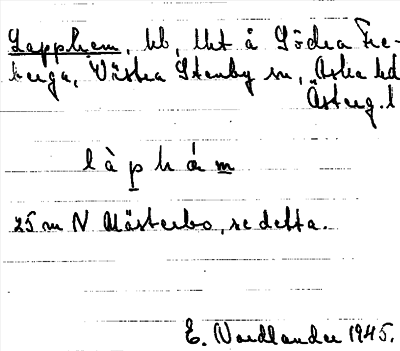 Lapphem, hb, lht å Södra Fre-
berga, Västra Stenby sn, Aska hd
Österg. l
làphám
25 m N Mästerbo, se detta.
E. Nordlander 1945.